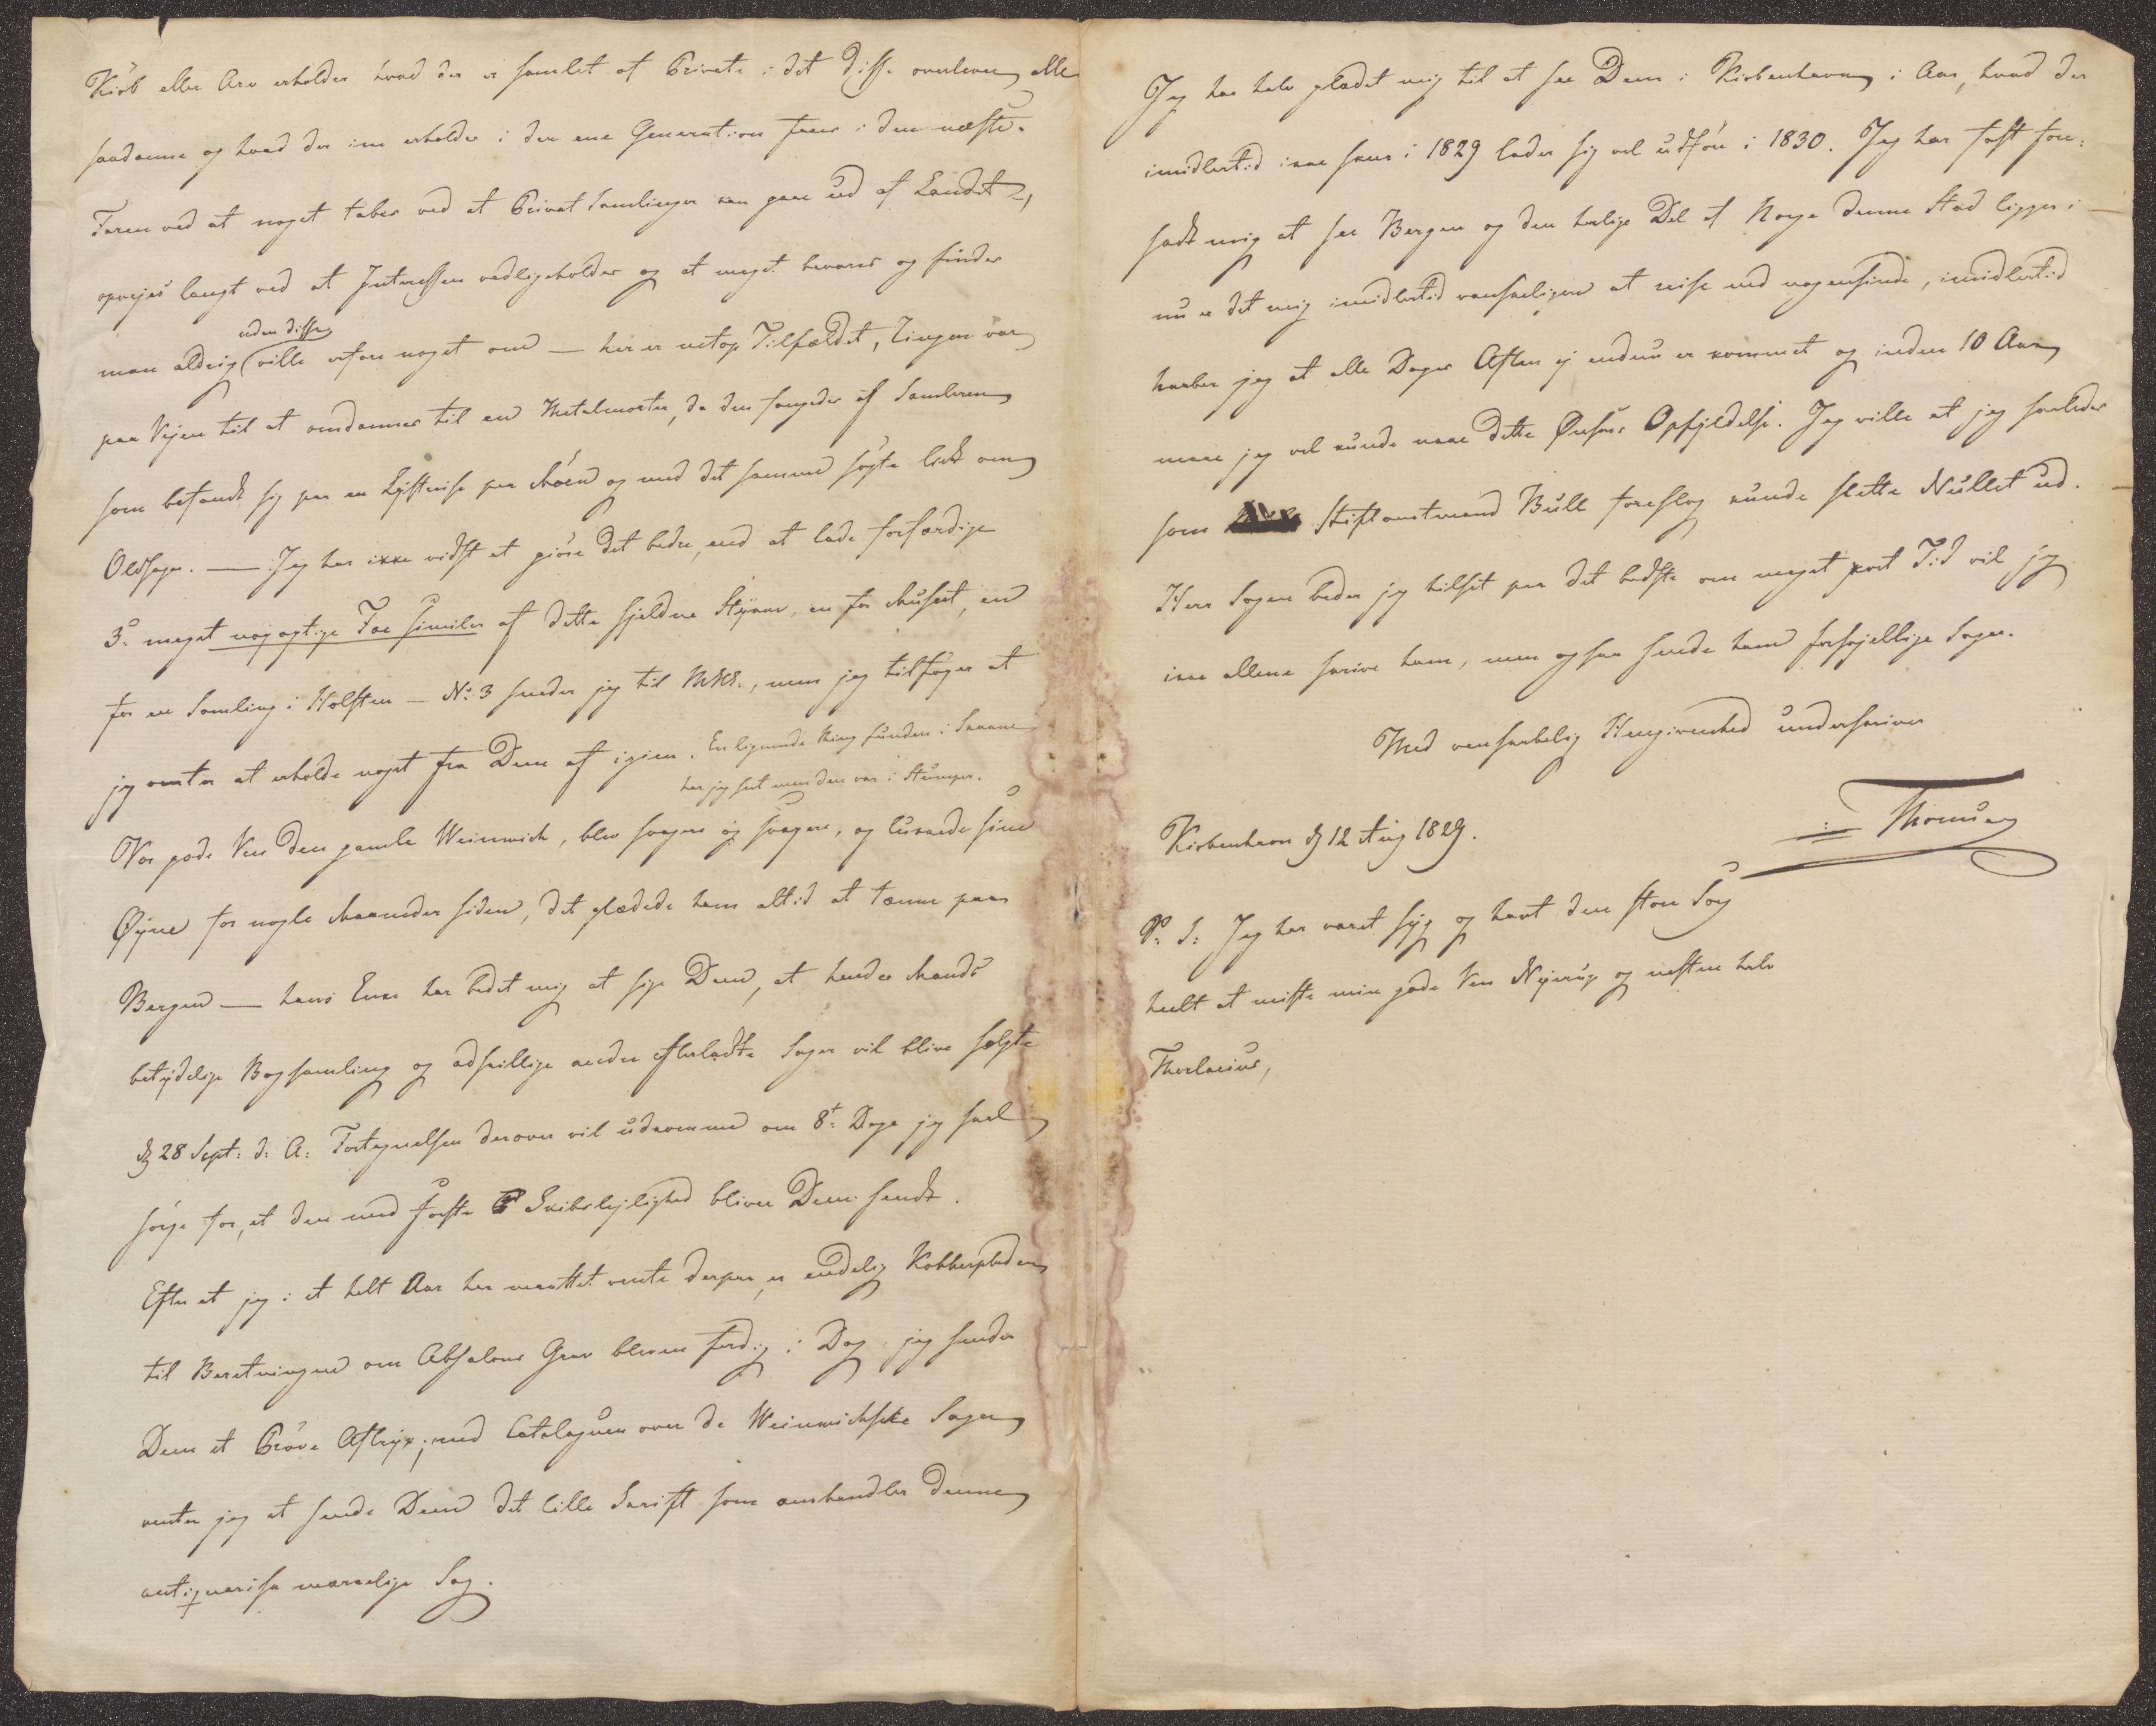 Kiøb eller Arv erholder hvad der er samlet af Private i det disse overleve alle
saadanne og hvad der ein erholdes i den ene Generation faaes i den næste.
Faren ved at noget tabes ved at Privat Samlinger kan gaae ud af Landet,
opvejes langt ved at Interessen vedligeholdes og at meget bevares og findes
uden disse
man aldrig ville erfare noget om — her er netop Tilfældet, Ringen var
paa Vejen til at omdannes til en Metalmorter, da den fangedes af Samleren
som befandt sig paa en Lystreise paa Møen og med det samme søgte lidt om
Oldsager. — Jeg har ikke vidst at giøre det bedre, end at lade forfærdige
3de meget nøjagtige Fac similer af dette sjeldne Stykke, en for Museet, en
for en Samling i Holsten — No 3 sender jeg til Mus., men jeg tilføjer at
jeg venter at erholde noget fra Dem af igien. En lignende Ring funden i Skaane
har jeg seet men den var i Stumper.
Vor gode Ven den gamle Weinwich, blev svagere og svagere, og lukkede sine
Øyne for nogle Maaneder siden, det glædede ham altid at tænke paa
Bergen — hans Enke har bedet mig at sige Dem, at hendes Mands
betydelige Bogsamling og adskillige andre efterladte Sager vil blive solgte
d 28 Sept: d: A: Fortegnelsen derover vil udkomme om 8te Dage jeg skal
sørge for, at den med første Skibslejlighed bliver Dem sendt.
Efter at jeg i et helt Aar har maattet vente derpaa, er endelig Kobberpladen
til Beretningen om Absalons Grav bleven færdig i Dag jeg sender
Dem et Prøve Aftryk; med Catalogen over de Weinwichske Sager
venter jeg at sende Dem det lille Skrift som omhandler denne
antiqvariske mærkelige Sag.
Jeg har halv glædet mig til at see Dem i Kiøbenhavn i Aar, hvad der
imidlertid ikke skeer i 1829 lader sig vel udføre i 1830. Jeg har fast fore:
sadt mig at see Bergen og den herlige Del af Norge denne Stad ligger i —
nu er det mig imidlertid vanskeligere at reise end nogensinde, imidlertid
haaber jeg at alle Dages Aften ej endnu er kommet og inden 10 Aar
maae jeg vel kunde naae dette Ønskes Opfyldelse. Jeg ville at jeg saaledes
som Stiftamtmand Bull foreslog kunde slette Nullet ud. —
Herr Sagen beder jeg hilset paa det bedste om meget kort Tid vil jeg
ikke allene skrive ham, men ogsaa sende ham forskjellige Sager.
Med venskabelig Hengivenhed underskriver
Kiøbenhavn d 12 Aug 1829.
Thomsen
P: S: Jeg har været syg og havt den store Sorg
heelt at miste min gode Ven Nyerup og næsten halv
Thorlacius,